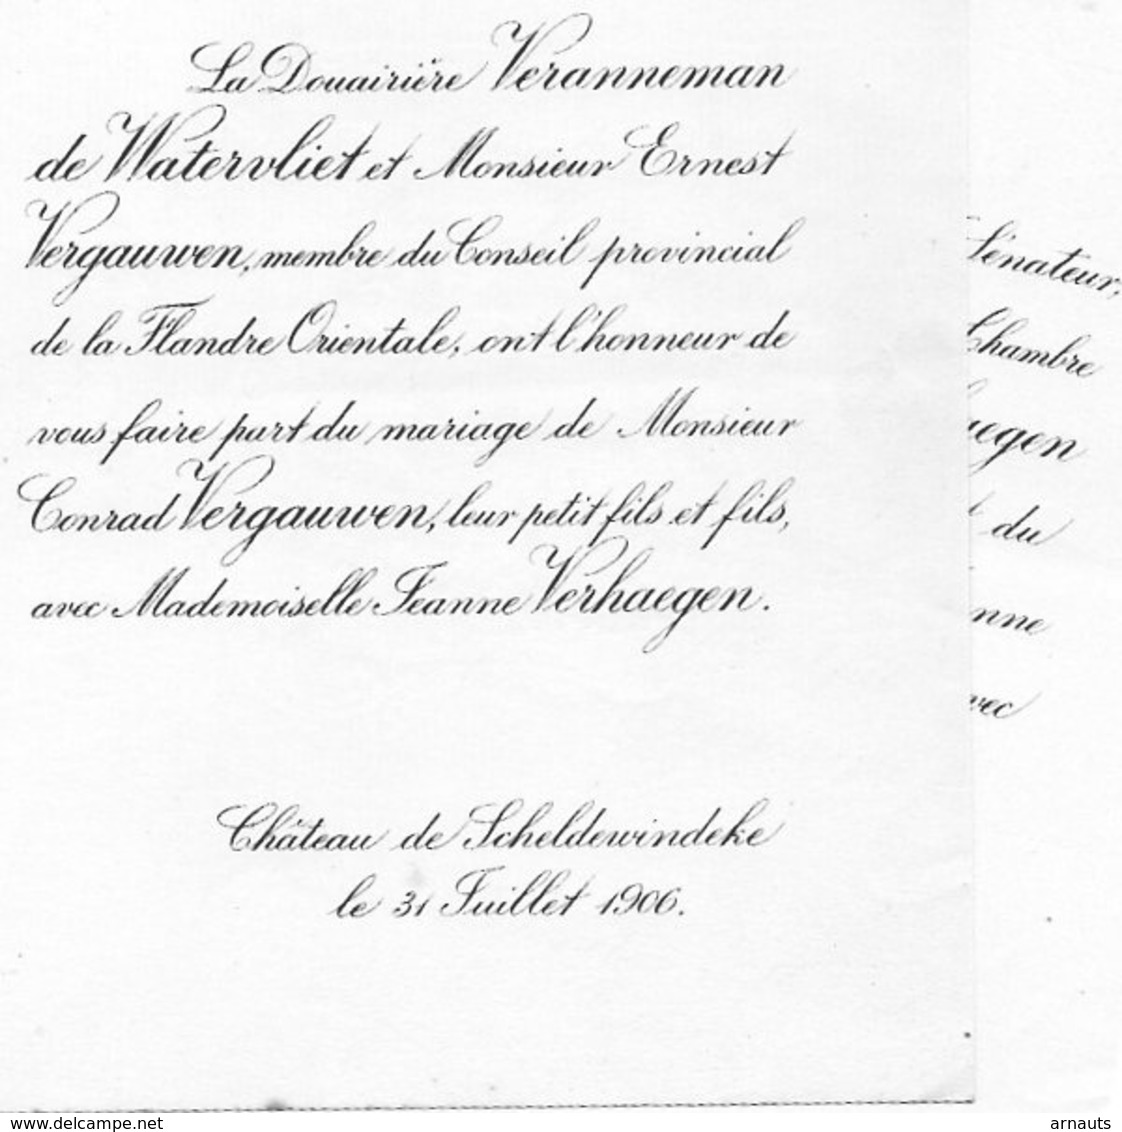 La Douairière Veranneman
de Watervliet et Monsieur Ernest
Vergauwen, membre du Conseil provincial
de la Flandre Orientale, ont l'honneur de
vous faire part du mariage de Monsieur
Conrad Vergauwen, leur petit fils et fils,
avec Mademoiselle Jeanne Verhaegen.
Château de Scheldewindeke
le 31 Juillet 1906.
Sénateur,
Chambre
aegen
du
nne
vec
www.delcampe.net
arnauts